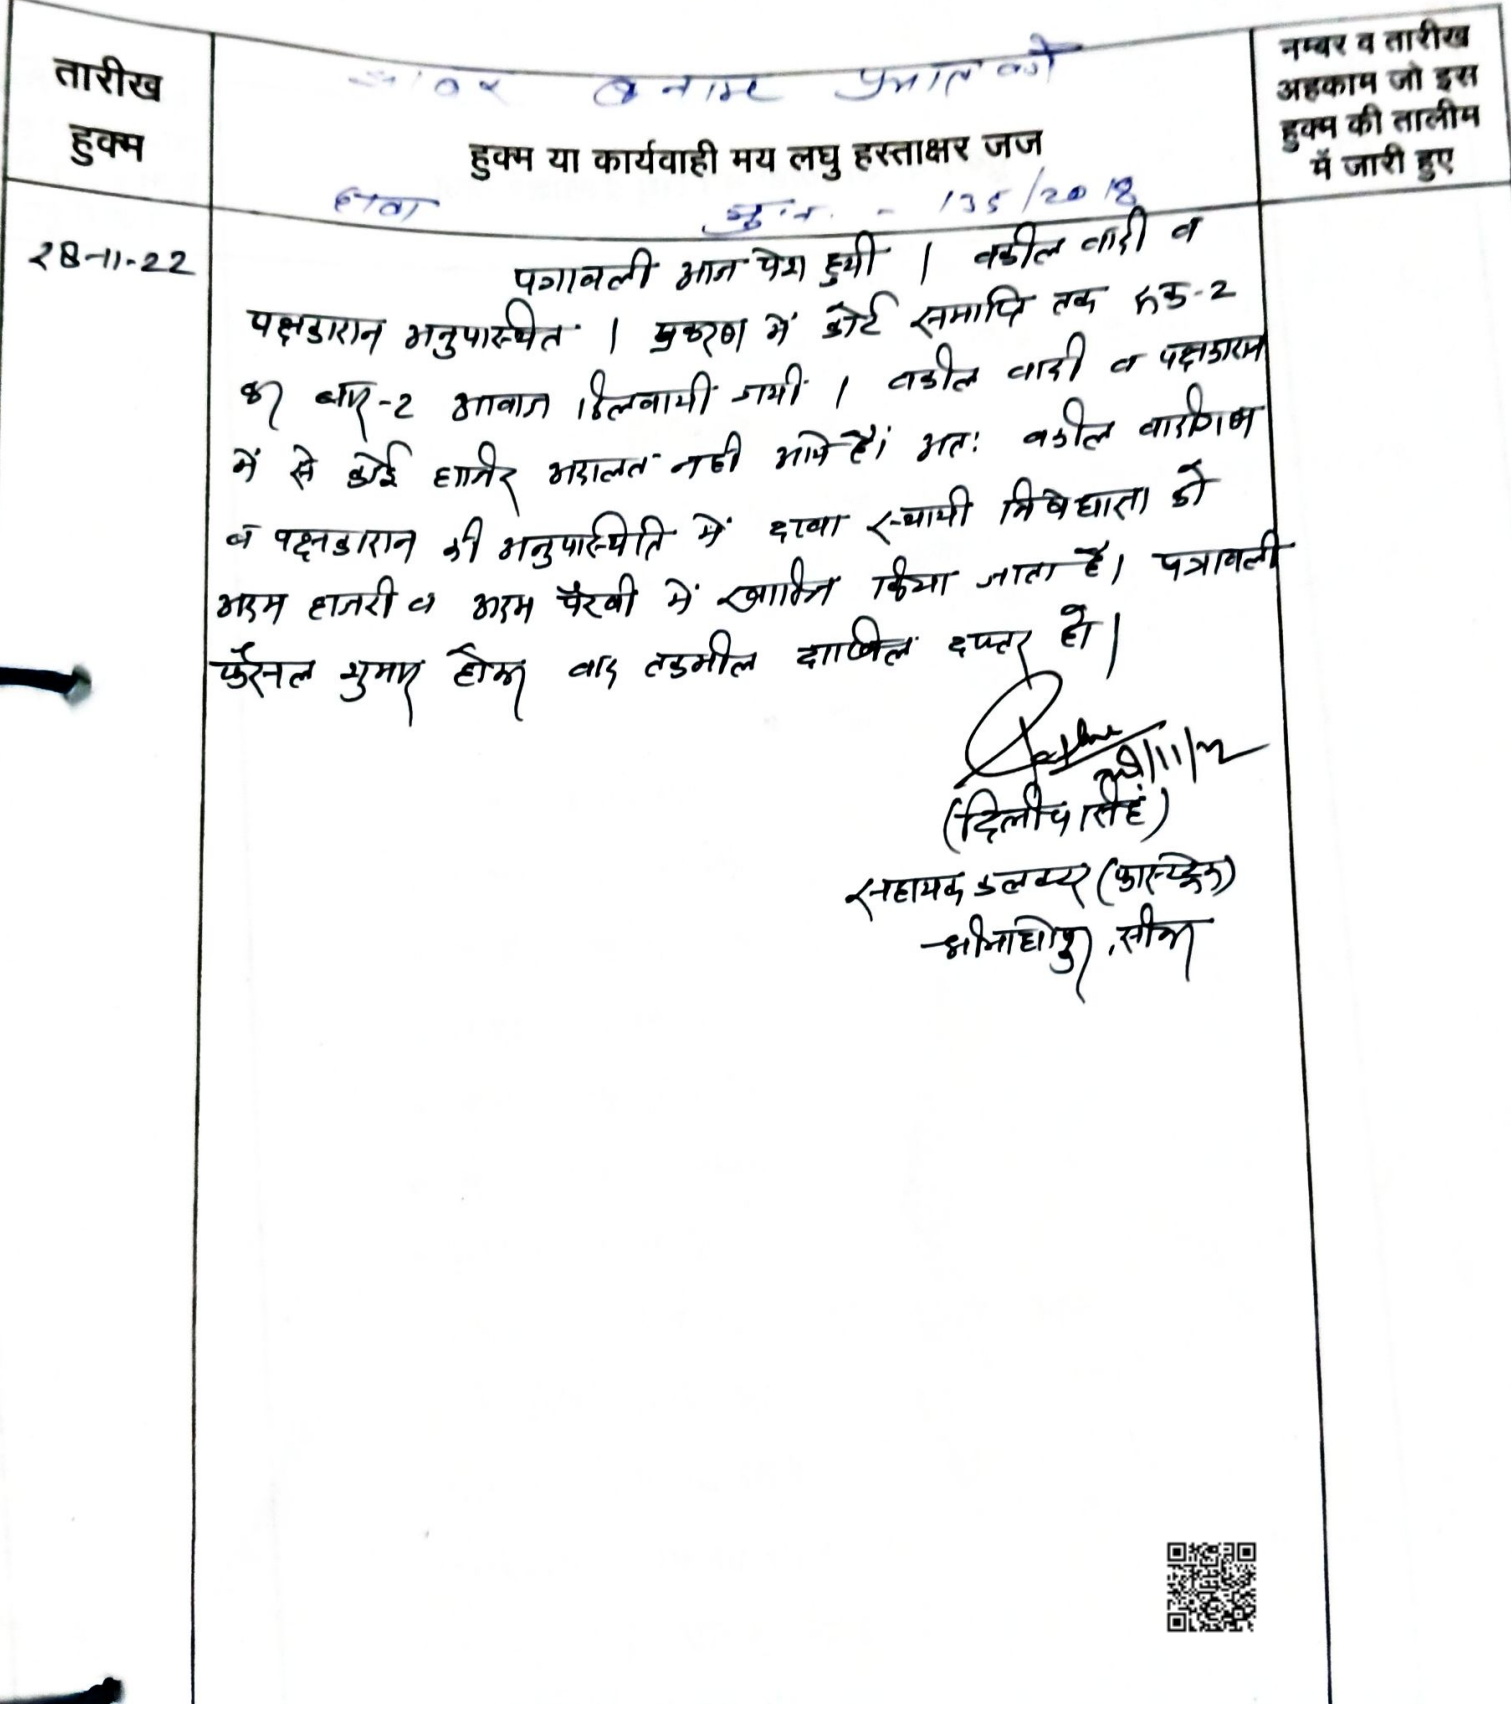 तारीख
हुक्म
बनाम
हुक्म या कार्यवाही मय लघु हस्ताक्षर जज
नम्बर व तारीख
अहकाम जो इस
हुक्म की तालीम
में जारी हुए
दावा मु.न. - 135/2018
28-11-22
पत्रावली आज पेश हुयी । वकील वादी व
पक्षकारान अनुपास्थित । प्रकरण में कोर्ट समाप्ति तक रुक-2
कर बार-2 आवाज दिलवायी गयी । वकील वादी व पक्षकारान
में से कोई हाजिर अदालत नही आये हैं। अतः वकील वादीगण
व पक्षकारान की अनुपास्थिति में दावा स्थायी निषेधाज्ञा को
अदम हाजरी व अदम पैरवी में खारिज किया जाता है। पत्रावली
फैसल शुमार होकर बाद तकमील दाखिल दफ्तर हो।
28/11/22
(दिलीप सिंह)
सहायक कलक्टर (फास्ट ट्रेक)
श्रीमाधोपुर, सीकर